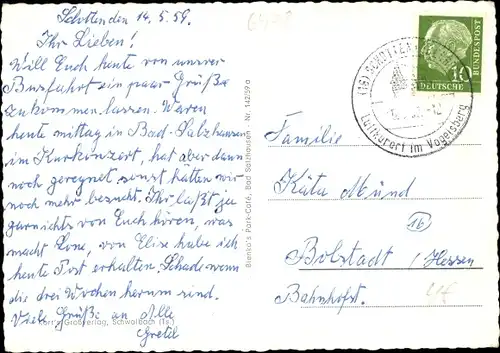 Schotten den 14.5.59.
Ihr Lieben!
Will Euch heute von unsrer
Busfahrt ein paar Grüße
zukommen lassen. Waren
heute mittag in Bad-Salzhausen
im Kurkonzert, hat aber dann
noch geregnet sonst hätten wir
noch mehr besucht. Ihr laßt ja
garnichts von Euch hören, was
macht Lone, von Elise habe ich
heute Post erhalten. Schade wenn
die drei Wochen herum sind.
Viele Grüße an Alle
Gretel
Großverlag, Schwalbach (Ts.)
Bienko's Park-Café, Bad Salzhausen Nr. 142/59 a
(16) SCHOTTEN
Luftkurort im Vogelsberg
10
DEUTSCHE
BUNDESPOST
Familie
Käta Münd
16
Bolstadt / Hessen
Bahnhofst.